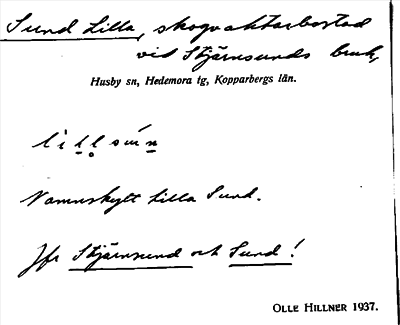 Sund Lilla, skogvaktarbostad
vid Stjärnsunds bruk,
Husby sn, Hedemora tg, Kopparbergs län.
Namnskylt Lilla Sund.
Jfr Stjärnsund och Sund!
OLLE HILLNER 1937.